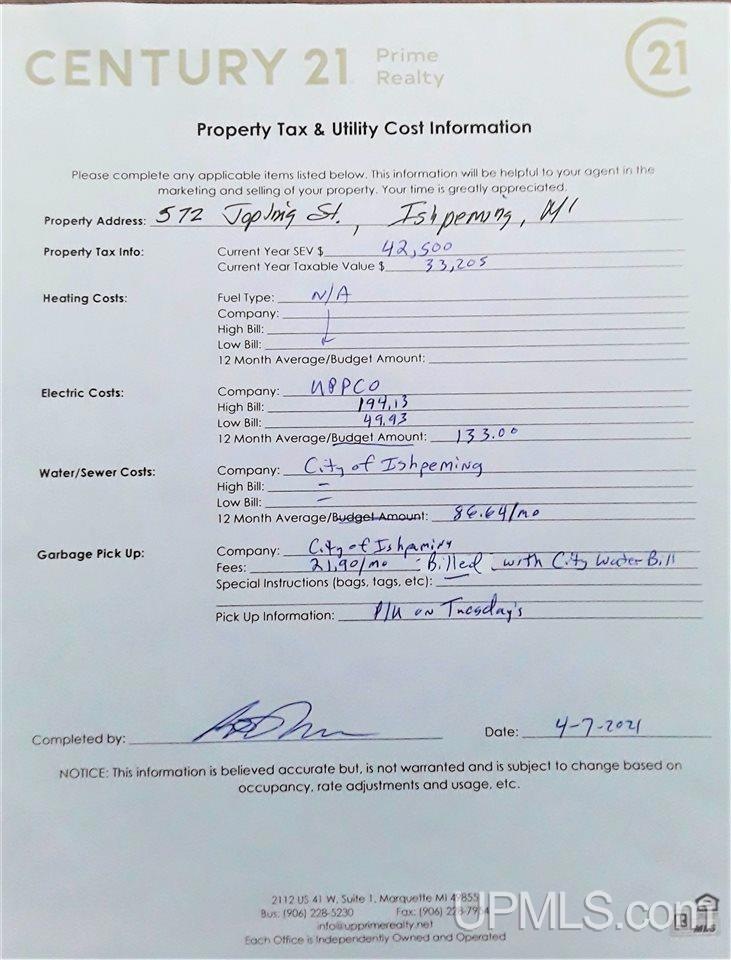 CENTURY 21 Prime Realty
21
Property Tax & Utility Cost Information
Please complete any applicable items listed below. This information will be helpful to your agent in the
marketing and selling of your property. Your time is greatly appreciated.
Property Address: 572 Jopling St., Ishpeming, MI
Property Tax Info: Current Year SEV $ 42,500
Current Year Taxable Value $ 33,205
Heating Costs: Fuel Type: N/A
Company:
High Bill:
Low Bill:
12 Month Average/Budget Amount:
Electric Costs: Company: UPPCO
High Bill: 194.13
Low Bill: 49.93
12 Month Average/Budget Amount: 133.00
Water/Sewer Costs: Company: City of Ishpeming
High Bill: –
Low Bill: –
12 Month Average/Budget Amount: 86.64/mo
Garbage Pick Up: Company: City of Ishpeming
Fees: 21.90/mo - Billed with City Water Bill
Special Instructions (bags, tags, etc): —
Pick Up Information: P/U on Tuesday's
Completed by: Date: 4-7-2021
NOTICE: This information is believed accurate but, is not warranted and is subject to change based on
occupancy, rate adjustments and usage, etc.
2112 US 41 W, Suite 1, Marquette MI 49855
Bus: (906) 228-5230 Fax: (906)
info@upprimerealty.net
Each Office is Independently Owned and Operated
UPMLS.com
R MLS